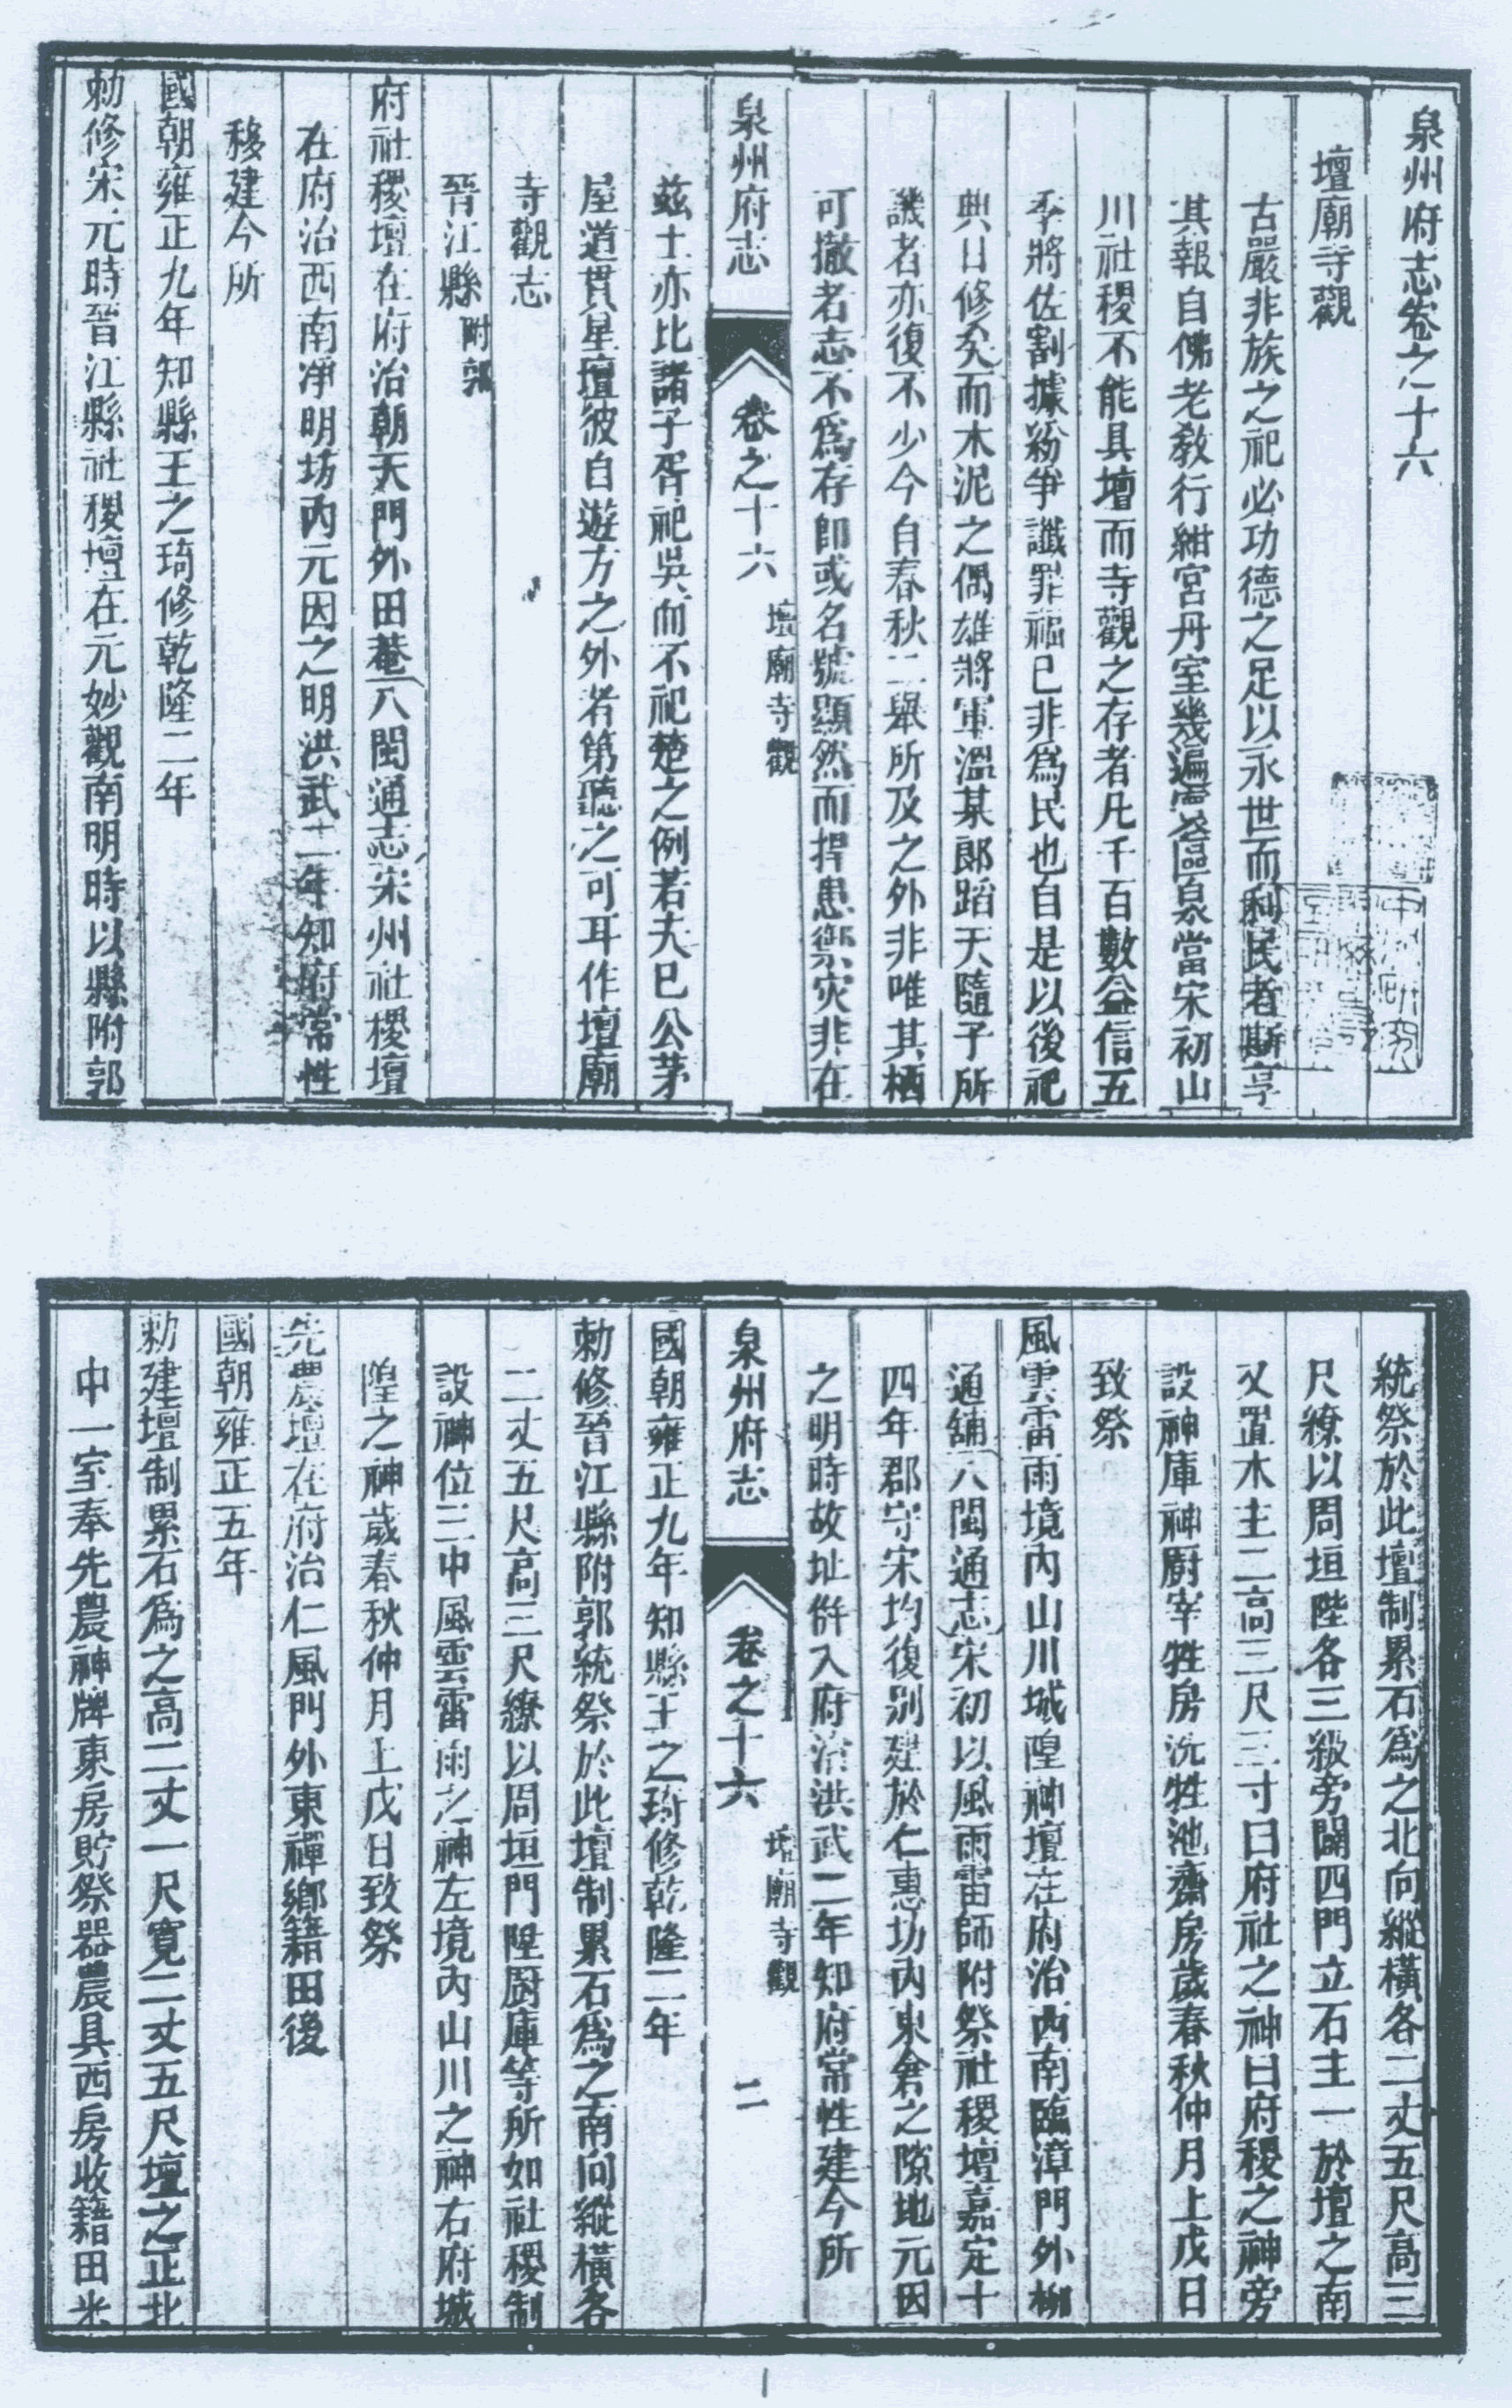 泉州府志卷之十六
壇廟寺觀
古嚴非族之祀必功德之足以永世而利民者斯享
其報自佛老教行紺宮丹室幾遍寰區泉當宋初山
川社稷不能具壇而寺觀之存者凡千百數益信五
季將佐割據紛爭讖罪福已非爲民也自是以後祀
典日修矣而木泥之偶雄將軍溫某郎蹈天隨子所
譏者亦復不少今自春秋二舉所及之外非唯其栖
可撤者志不爲存卽或名號顯然而捍患禦灾非在
泉州府志
卷之十六
壇廟寺觀
茲土亦比諸子胥祀吳而不祀楚之例若夫已公茅
屋道貫星壇彼自遊方之外者第聽之可耳作壇廟
寺觀志
晉江縣附郭
府社稷壇在府治朝天門外田菴八閩通志宋州社稷壇
在府治西南淨明坊內元因之明洪武二年知府常性
移建今所
國朝雍正九年知縣王之琦修乾隆二年
勅修宋元時晉江縣社稷壇在元妙觀南明時以縣附郭
統祭於此壇制累石爲之北向縱橫各二丈五尺高三
尺繚以周垣陛各三級旁闢四門立石主一於壇之南
又置木主二高三尺三寸曰府社之神曰府稷之神旁
設神庫神廚宰牲房洗牲池齋房歲春秋仲月上戊日
致祭
風雲雷雨境內山川城隍神壇在府治西南臨漳門外柳
通舖八閩通志宋初以風雨雷師附祭社稷壇嘉定十
四年郡守宋均復別建於仁惠坊內東倉之隙地元因
之明時故址倂入府治洪武二年知府常性建今所
泉州府志
卷之十六
壇廟寺觀
二
國朝雍正九年知縣王之琦修乾隆二年
勅修晉江縣附郭統祭於此壇制累石爲之南向縱橫各
二丈五尺高三尺繚以周垣門陛廚庫等所如社稷制
設神位三中風雲雷雨之神左境內山川之神右府城
隍之神歲春秋仲月上戊日致祭
先農壇在府治仁風門外東禪鄉籍田後
國朝雍正五年
勅建壇制累石爲之高二丈一尺寬二丈五尺壇之正北
中一室奉先農神牌東房貯祭器農具西房收籍田米
1